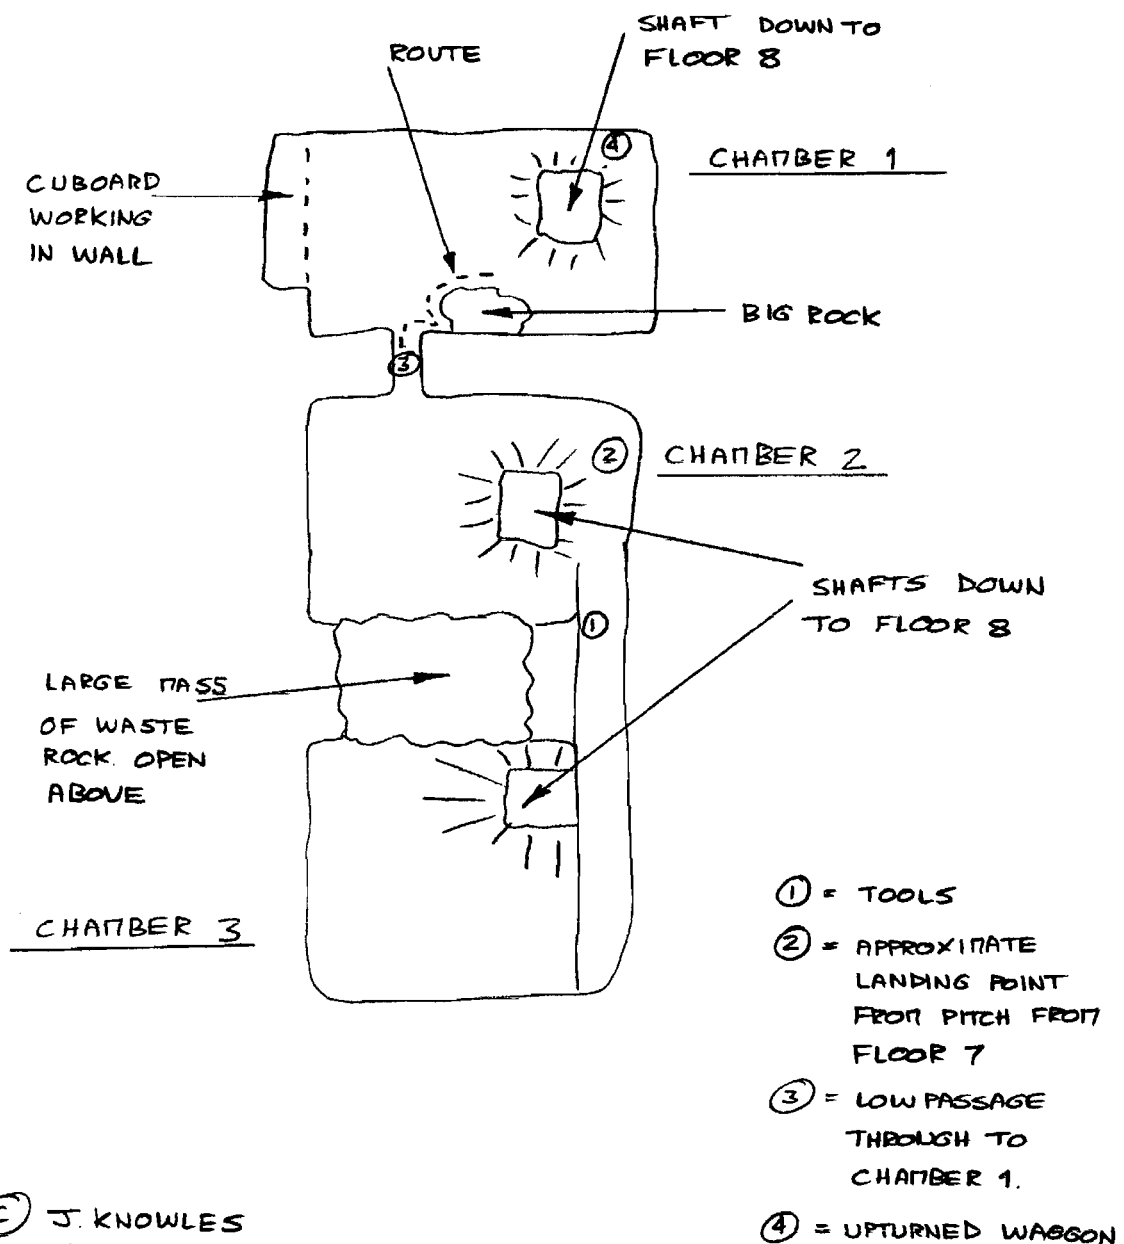 SHAFT DOWN TO
FLOOR 8
ROUTE
4
CHAMBER 1
CUBOARD
WORKING
IN WALL
BIG ROCK
3
2
CHAMBER 2
SHAFTS DOWN
TO FLOOR 8
1
LARGE MASS
OF WASTE
ROCK. OPEN
ABOVE
CHAMBER 3
1 = TOOLS
2 = APPROXIMATE
LANDING POINT
FROM PITCH FROM
FLOOR 7
3 = LOW PASSAGE
THROUGH TO
CHAMBER 1.
4 = UPTURNED WAGGON
© J. KNOWLES